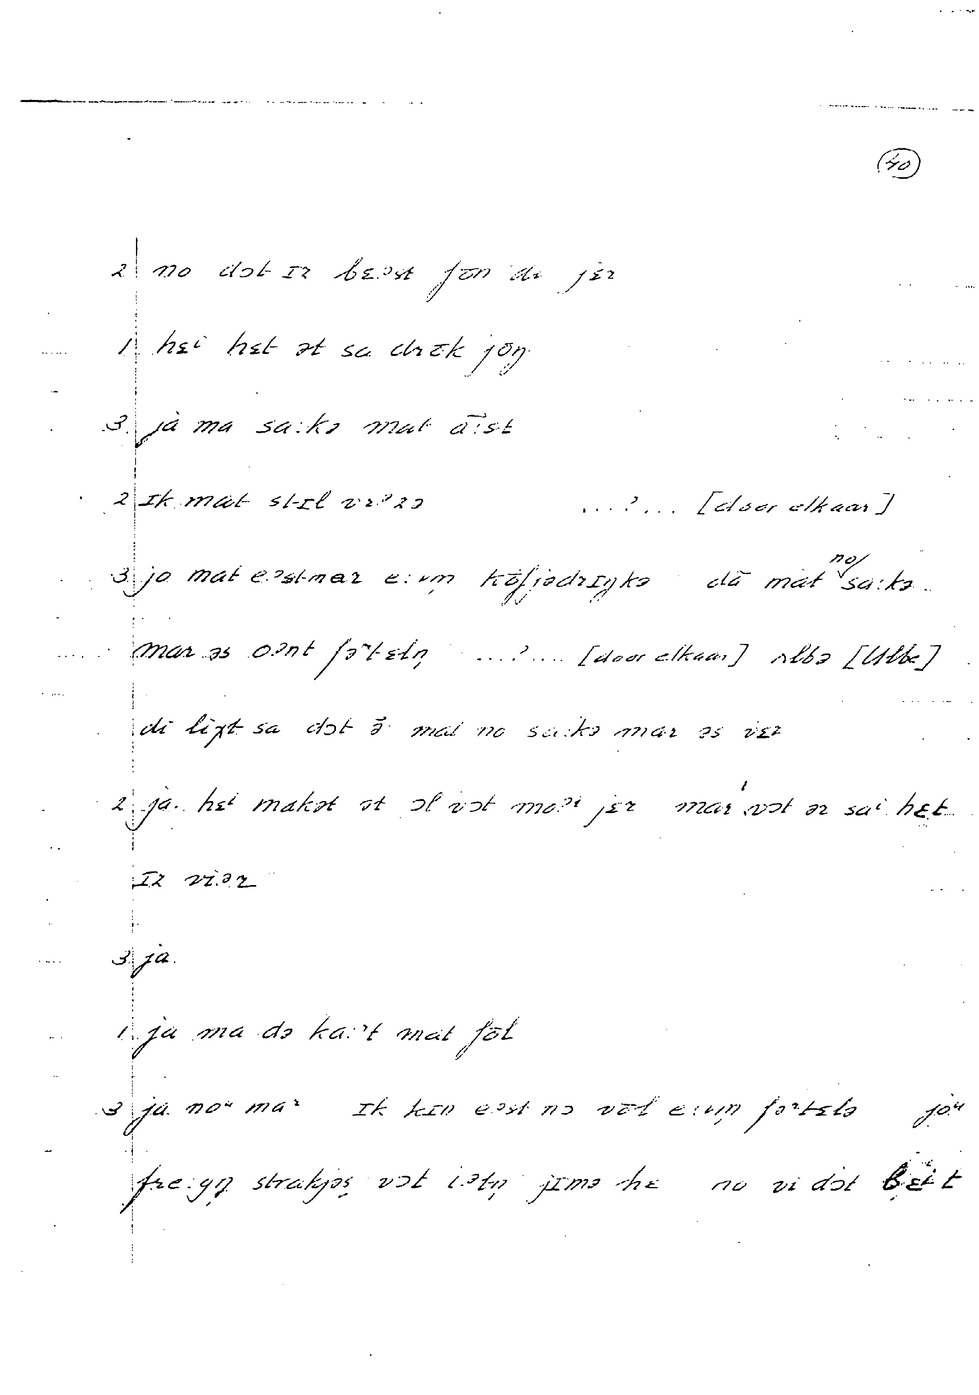 40
2 no dɔt ɪz bɛᵊst fɔ̄n də jɛr
1 hɛⁱ hɛt ət sa drɔ̄k jɔ̄ŋ
3. jà ma sa:kə mat ā:st
2 ɪk mat stɪl vɛᵊzə ...?... [door elkaar]
3 jo mat eᵊstmar e:vm̩ kōfjədrɪŋkə dā mat no sa:kə
mar əs oənt fəʳtɛln̩ ...?.... [door elkaar] ʌlbə [Ulbe]
di liχt sa dɔt mat no sa:kə mar əs vɛr
2 ja. hɛⁱ makət ət ɔl vɔt moᵊⁱ jɛr mar vɔt ər saⁱ hɛt
ɪz vi.ər
3 ja.
1. ja ma də ka:ʳt mat fōl
3 ja noᵘ maʳ ɪk kɪn eᵊst nə vōl e:vm̩ fəʳtɛlə joᵘ
fre:gŋ̩ strakjəs vɔt i.ətn̩ jɪmə hɛ no vi dɔt bɛⁱt